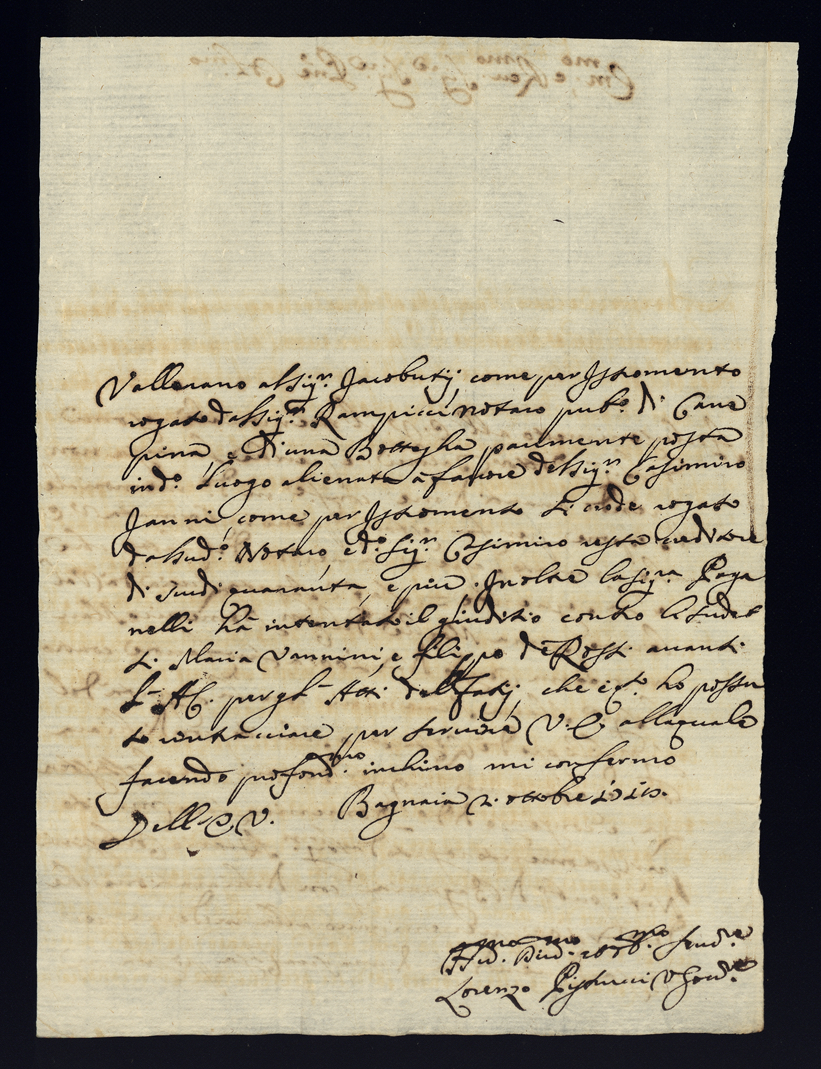 Vallerano al Sig.r Jacobutij come per Istromento
rogato dal Sig.r Rampicci notaro pub.o di Cane
pina, e di una Bottegha parimente posta
in d.o Luogo alienata à favore del Sig.r Casimiro
Janni, come per Istromento si crede rogato
dal sud.o Notaro, e d.o Sig.r Casimiro resta creditore
di scudi quaranta, e più. Inoltre la Sig.ra Paga
nelli hà intentato il giuditio contro li sudet
ti Maria Vannini, e Filippo de Rossi avanti
l'AC. per gl'Atti dell Fatij, che è q.to ho possu
to rintracciare per servire V.E. alla quale
facendo profond.mo inchino mi confermo
Dell'E.V. Bagnaia 2. ottobre
Hu.mo Div.mo Serv.re
Lorenzo